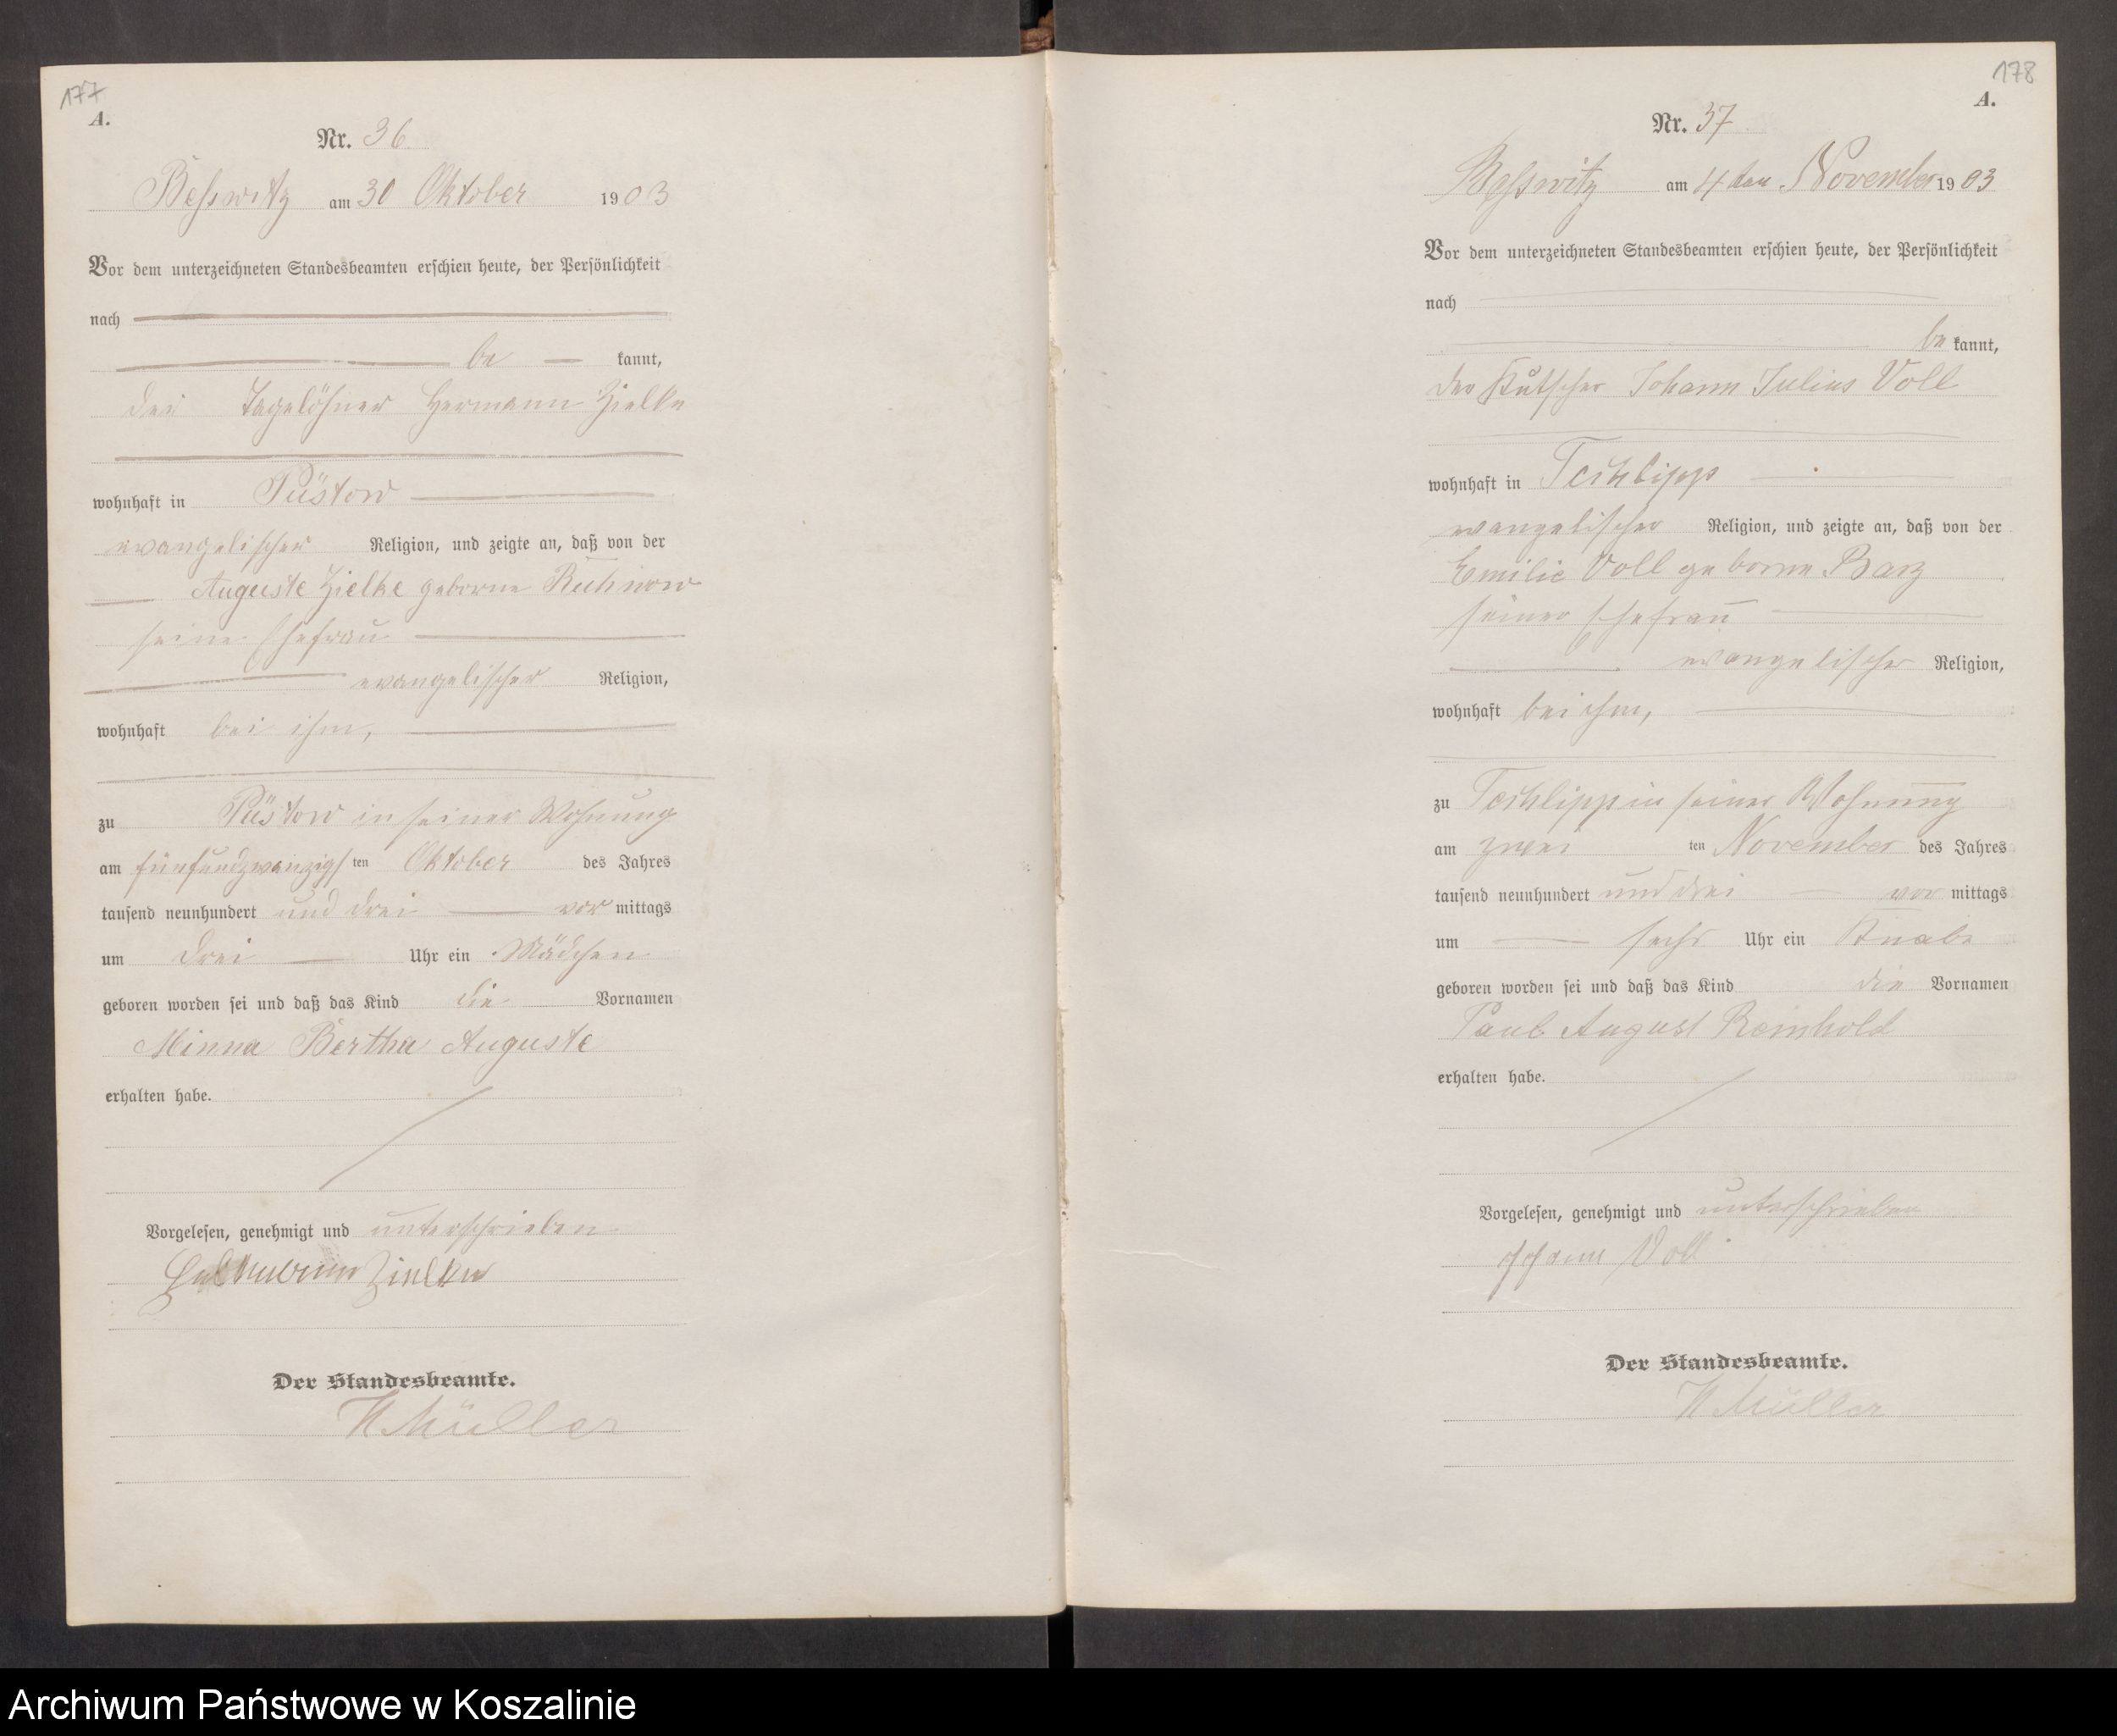 177
A.
Nr. 36
Besswitz am 30 Oktober 1903
Vor dem unterzeichneten Standesbeamten erschien heute, der Persönlichkeit
nach
be kannt,
der Tagelöhner Hermann Zielke
wohnhaft in Püstow
evangelischer Religion, und zeigte an, daß von der
Auguste Zielke geborne Ruhnow
seine Ehefrau
evangelischer Religion,
wohnhaft bei ihm,
zu Püstow in seiner Wohnung
am fünfundzwanzigsten Oktober des Jahres
tausend neunhundert und drei vor mittags
um drei Uhr ein Mädchen
geboren worden sei und daß das Kind die Vornamen
Minna Bertha Auguste
erhalten habe.
Vorgelesen, genehmigt und unterschrieben
Zielke
Der Standesbeamte.
Müller
178
A.
Nr. 37
Besswitz am 4 ten November 1903
Vor dem unterzeichneten Standesbeamten erschien heute, der Persönlichkeit
nach
be kannt,
der Kutscher Johann Julius Voll
wohnhaft in Techlipp
evangelischer Religion, und zeigte an, daß von der
Emilie Voll geborne Barz
seiner Ehefrau
evangelischer Religion,
wohnhaft bei ihm,
zu Techlipp in seiner Wohnung
am zwei ten November des Jahres
tausend neunhundert und drei vor mittags
um sechs Uhr ein Knabe
geboren worden sei und daß das Kind die Vornamen
Paul August Reinhold
erhalten habe.
Vorgelesen, genehmigt und unterschrieben
Johann Voll
Der Standesbeamte.
Müller
Archiwum Państwowe w Koszalinie